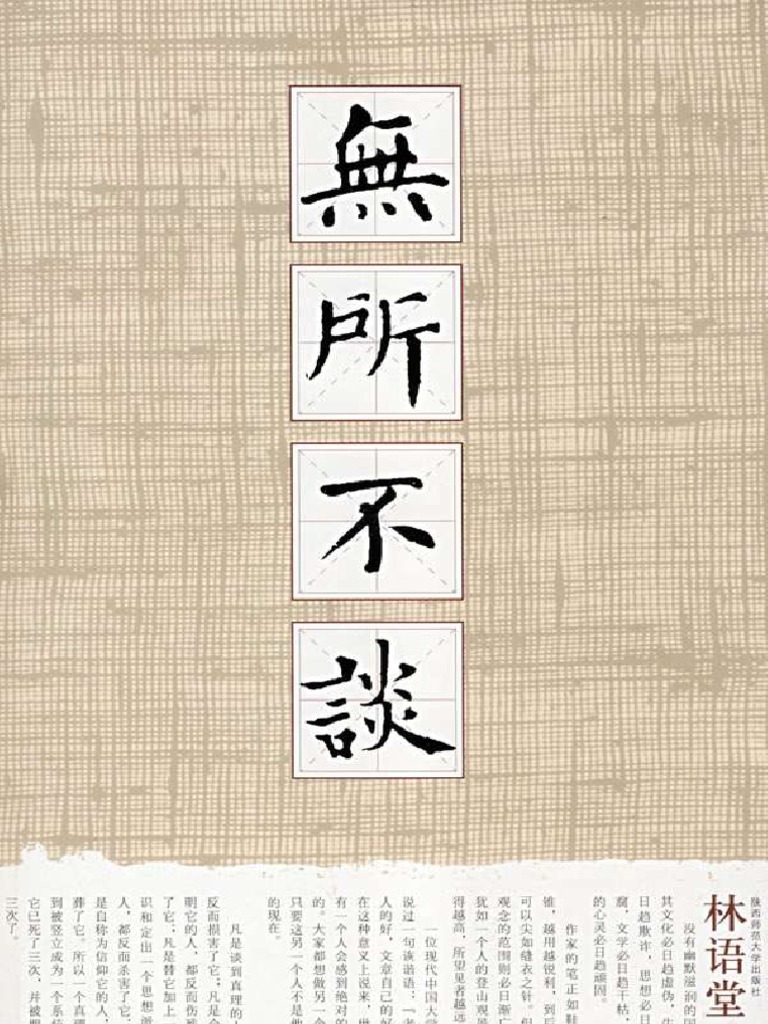 無所不談
陕西师范大学出版社
林语堂
没有幽默滋润的
其文化必日趋虚伪，生
日趋欺诈，思想必日
腐，文学必日趋干枯，
的心灵必日趋顽固。
作家的笔正如鞋
锥，越用越锐利，到后
可以尖如缝衣之针。但
观念的范围则必日渐广
犹如一个人的登山观景
得越高，所望见者越远
一位现代中国大学
说过一句诙谐语：“老
人的好，文章自己的好
在这种意义上说来，世
有一个人会感到绝对的
的。大家都想做另一个
只要这另一个人不是他
的现在。
凡是谈到真理的人
反而损害了它；凡是企
明它的人，都反而伤残
了它；凡是替它加上一
识和定出一个思想派
人，都反而杀害了它；
是自称为信仰它的人，
葬了它。所以一个真理
到被竖立成为一个系统
它已死了三次，并被埋
三次了。